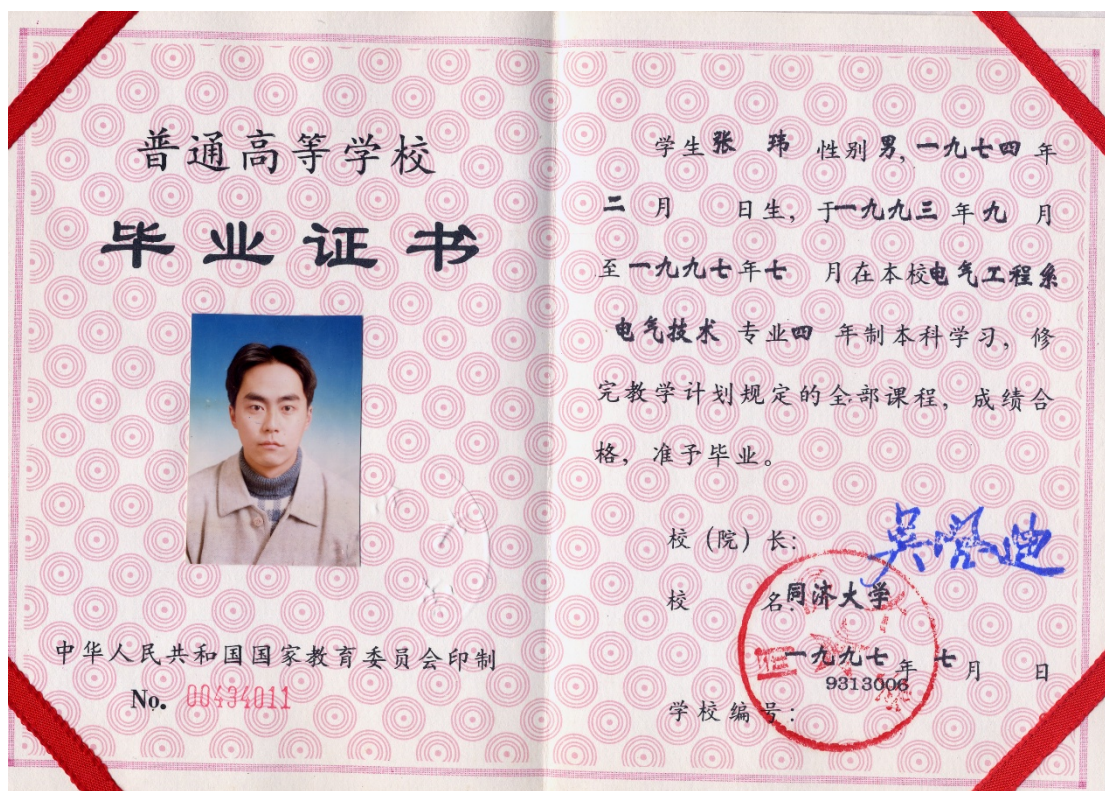 普通高等学校
毕业证书
中华人民共和国国家教育委员会印制
No. 00434011
学生张 玮 性别男,一九七四年
二 月 日生, 于一九九三年九 月
至一九九七年七 月在本校电气工程系
电气技术 专业四 年制本科学习, 修
完教学计划规定的全部课程, 成绩合
格, 准予毕业。
校(院)长: 吴启迪
校 名: 同济大学
一九九七年 七月 日
9313006
学校编号: